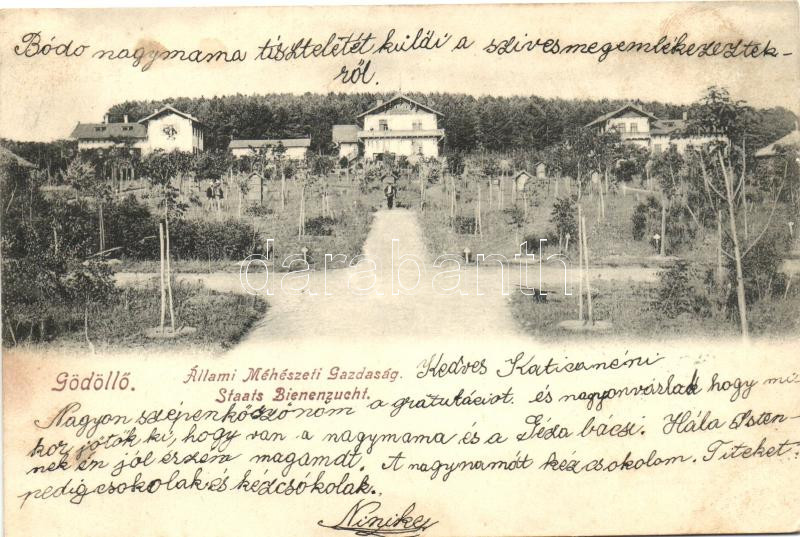 Bódo nagymama tiszteletét küldi a szivesmegemlékezeztek-
ről.
darabanth.com
Gödöllő.
Állami Méhészeti Gazdaság.
Staats Bienenzucht.
Kedves Katicanéni
Nagyon szépenköszönöm a gratulációt. és nagyonvárlak hogy mi-
kor jöttök ki, hogy van a nagymama és a Géza bácsi. Hála Isten-
nek én jól érzem magamat. A nagymamát kézcsokolom. Titeket
pedigcsokolak és kézcsókolak.
Ninike